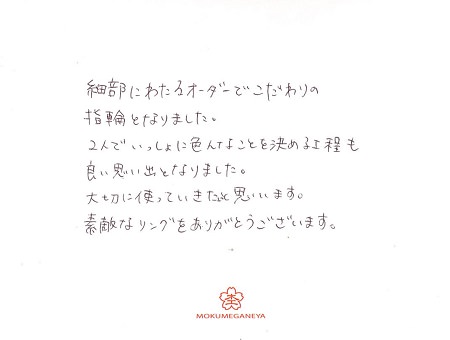 細部にわたるオーダーでこだわりの
指輪となりました。
2人でいっしょに色んなことを決める過程も
良い思い出となりました。
大切に使っていきたいと思います。
素敵なリングをありがとうございます。
MOKUMEGANEYA